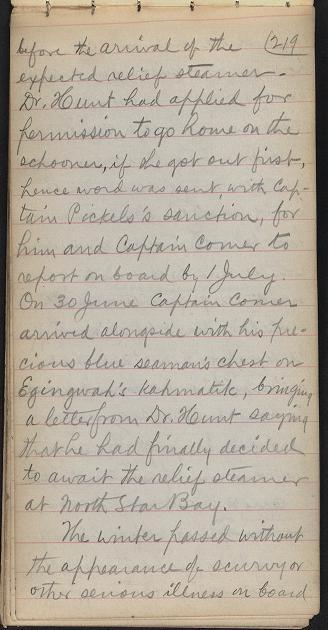 before the arrival of the (219
expected relief steamer.
Dr. Hunt had applied for
permission to go home on the
schooner, if she got out first,
hence word was sent, with Cap-
tain Pickels's sanction, for
him and Captain Comer to
report on board by 1 July.
On 30 June Captain Comer
arrived alongside with his pre-
cious blue seaman's chest on
Egingwah's kahmatik, bringing
a letter from Dr. Hunt saying
that he had finally decided
to await the relief steamer
at North Star Bay.
The winter passed without
the appearance of scurvy or
other serious illness on board